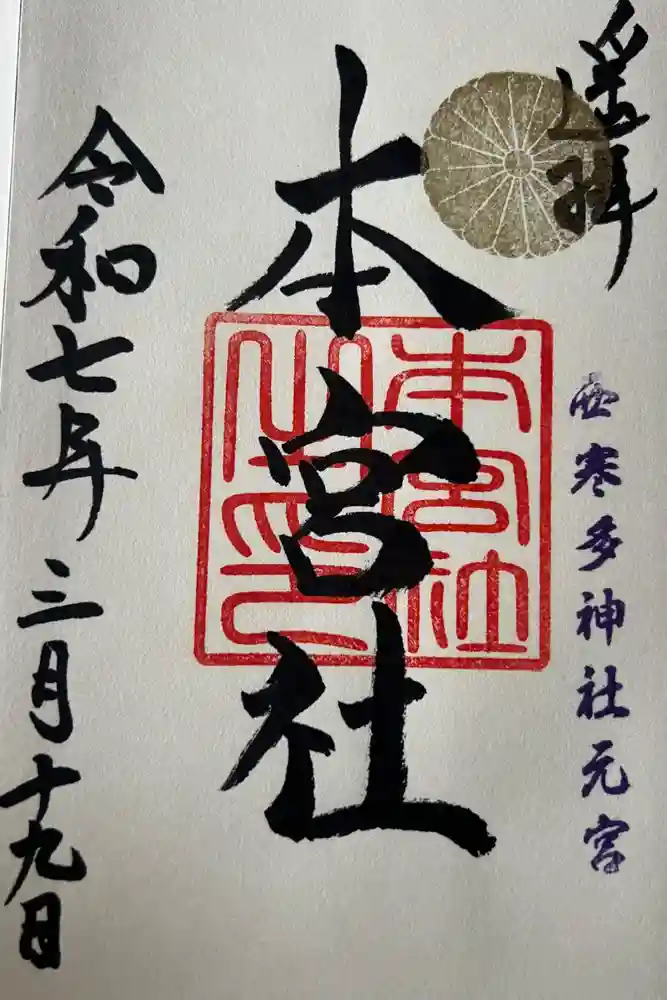 遥拝
西寒多神社元宮
本宮社
本宮社之印
令和七年三月十九日